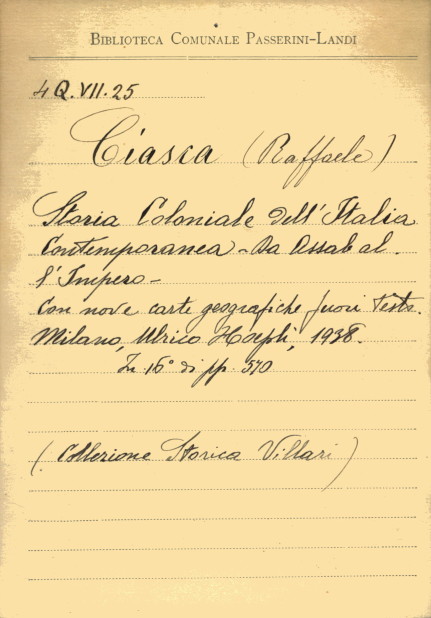 BIBLIOTECA COMUNALE PASSERINI-LANDI
4Q.VII.25
Ciasca (Raffaele)
Storia Coloniale dell'Italia
Contemporanea - Da Assab al-
l'Impero -
Con nove carte geografiche fuori testo.
Milano, Ulrico Hoepli, 1938.
In 16° di pp. 570
(Collezione Storica Villari)